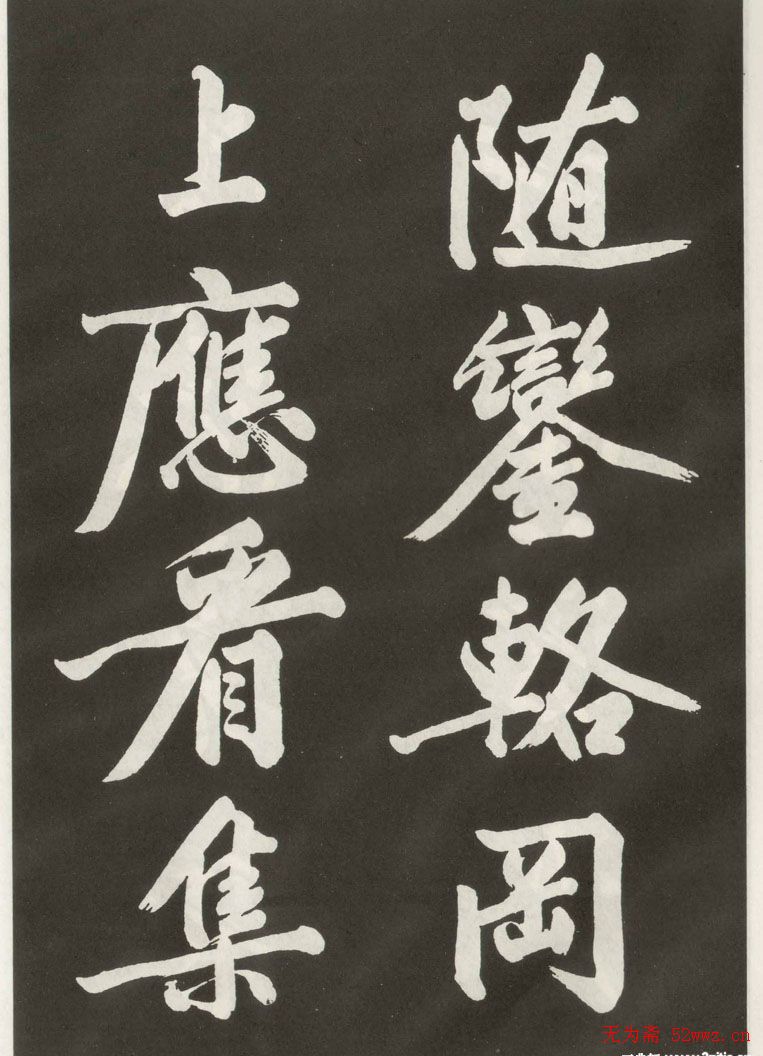 随鑾輅岡
上應看集
无为斋 52wwz.cn